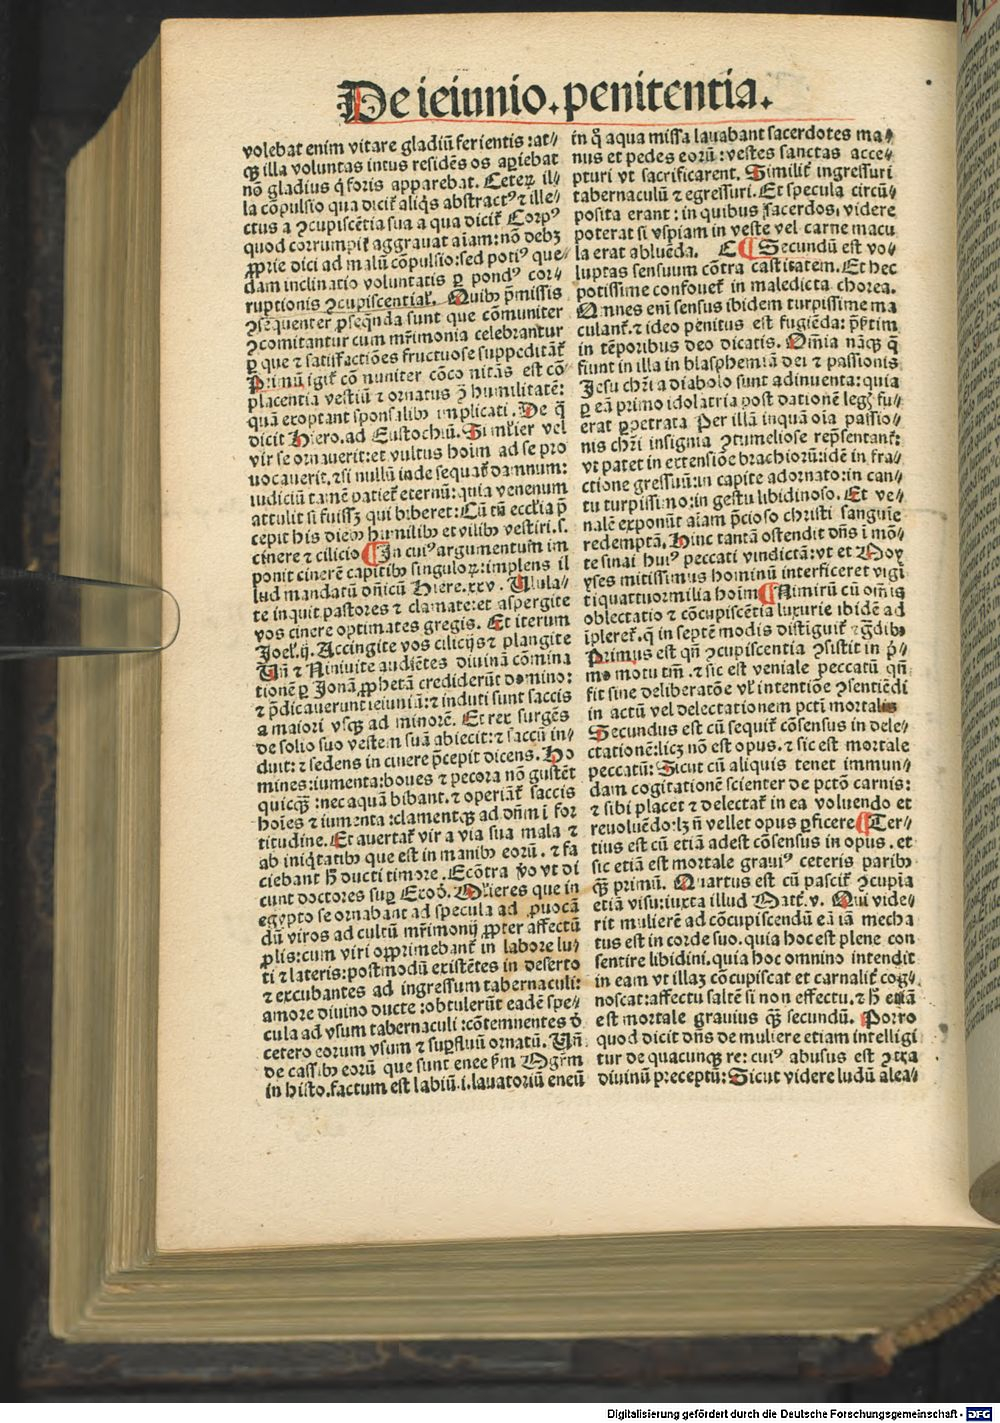 De ieiunio. penitentia.
volebat enim vitare gladiū ferientis: at⸗
qꝫ illa voluntas intus residēs os aꝑiebat
nō gladius q̇ foris apparebat. Ceteꝝ il⸗
la cōpulsio qua dicit̄ aliq̇s abstractꝰ ⁊ ille⸗
ctus a ꝯcupiscētia sua a qua dicit̄ Corpꝰ
quod corrumpit̄ aggrauat aīam: nō debꝫ
ꝓprie dici ad malū cōpulsio: sed potiꝰ que⸗
dam inclinatio voluntatis ꝑ pondꝰ cor⸗
ruptionis ꝯcupiscential'. Quibꝰ p̄missis
ꝯsequenter ꝓseq̄nda sunt que cōmuniter
ꝯcomitantur cum mr̄imonia celebrantur
ꝑ que ⁊ satiffactiōes fructuose suppeditāt̄
Primū igit̄ cō nuniter cōco nitās est cō⸗
placentia vestiū ⁊ ornatus ꝯ̄ humilitatē:
quā exoptant sponsalibꝰ implicati. De q̄
dicit Hiero. ad Eustochiū. Si mulier vel
vir se ornauerit: et vultus hoīm ad se pro
uocauerit. ⁊ si nullū inde sequat̄ damnum:
iudiciū tamē patiet̄ eternū: quia venenum
attulit si fuissꝫ qui biberet: Cū tn̄ eccl'ia p̄
cepit his diebꝰ humilibꝰ et vilibꝰ vestiri. s.
cinere ⁊ cilicio ¶ In cuiꝰ argumentum im
ponit cinerē capitibꝰ singuloꝝ: implens il
lud mandatū dn̄icū Hiere. xxv. Ulula⸗
te inquit pastores ⁊ clamate: et aspergite
vos cinere optimates gregis. Et iterum
Joel'. ij. Accingite vos cilicijs ⁊ plangite
Un̄ ⁊ Niniuite audiētes diuinā cōmina
tionē ꝑ Jonā ꝓphetā crediderūt domino:
⁊ p̄dicauerunt ieiuniū: ⁊ induti sunt saccis
a maiori vsqꝫ ad minorē. Et rex surgēs
de solio suo vestem suā abiecit: ⁊ saccū in⸗
duit: ⁊ sedens in cinere p̄cepit dicens. Ho
mines: iumenta: boues ⁊ pecora nō gustēt
quicqꝫ: nec aquā bibant. ⁊ operiāt̄ saccis
hoīes ⁊ iumenta: clamentqꝫ ad dn̄m ī for
titudine. Et auertat̄ vir a via sua mala ⁊
ab iniq̇tatibꝰ que est in manibꝰ eorū. ⁊ fa
ciebant h̄ ducti timore. Ecōtra v̄o vt di
cunt doctores suꝑ Exod. Ml'ieres que in
egypto se ornabant ad specula ad ꝓuocā
dū viros ad cultū mr̄imonij ꝓpter affectū
ꝓlis: cum viri opprimebant̄ in labore lu⸗
ti ⁊ lateris: postmodū existētes in deserto
⁊ excubantes ad ingressum tabernaculi:
amore diuino ducte: obtulerūt eadē spe⸗
cula ad vsum tabernaculi: cōtemnentes d̄
cetero eorum vsum ⁊ suꝑfluū ornatū. Un̄
de cassibꝰ eorū que sunt enee ẜm Mgr̄m
in histo. factum est labiū .i. lauatoriū eneū
in q̊ aqua missa lauabant sacerdotes ma⸗
nus et pedes eorū: vestes sanctas acce⸗
pturi vt sacrificarent. Similit̄ ingressuri
tabernaculū ⁊ egressuri. Et specula circū⸗
posita erant: in quibus sacerdos, videre
poterat si vspiam in veste vel carne macu
la erat abluēda. C ¶ Secundū est vo⸗
luptas sensuum cōtra castitatem. Et hec
potissime confouet̄ in maledicta chorea.
Omnes enī sensus ibidem turpissime ma
culant̄. ⁊ ideo penitus est fugiēda: p̄ẜtim
in tēporibus deo dicatis. Om̄ia nāqꝫ q̄
fiunt in illa in blasphemiā dei ⁊ passionis
Jesu chr̄i a diabolo sunt adinuenta: quia
ꝑ eā primo idolatria post dationē legꝭ fu⸗
erat ꝑpetrata Per illā inquā oīa passio⸗
nis chr̄i insignia ꝯtumeliose rep̄sentant̄:
vt patet in extensiōe brachiorū: idē in fra⸗
ctione gressuū: in capite adornato: in can⸗
tu turpissimo: in gestu libidinoso. Et ve⸗
nalē exponūt aīam p̄cioso christi sanguīe
redemptā. Hinc tantā ostendit dn̄s ī mō⸗
te sinai huiꝰ peccati vindictā: vt et Moy
yses mitissimus hominū interficeret vigī
tiquattuormilia hoīm ¶ Nimirū cū om̄is
oblectatio ⁊ cōcupiscētia luxurie ibidē ad
īpleret̄. q̄ in septē modis distiguit̄ ⁊ g̊dibꝰ
Primus est qn̄ ꝯcupiscentia ꝯsistit in p̄⸗
mo motu tm̄. ⁊ sic est veniale peccatū qn̄
fit sine deliberatōe vl' intentiōe ꝯsentiēdi
in actū vel delectationem pctī mortalis
Secundus est cū sequit̄ cōsensus in dele⸗
ctationē: licꝫ nō est opus. ⁊ sic est mortale
peccatū: Sicut cū aliquis tenet immun⸗
dam cogitationē scienter de pctō carnis:
⁊ sibi placet ⁊ delectat̄ in ea voluendo et
reuoluēdo: lꝫ n̄ vellet opus ꝑficere ¶ Ter⸗
tius est cū etiā adest cōsensus in opus. et
sic etiā est mortale grauiꝰ ceteris paribꝰ
qꝫ primū. Quartus est cū pascit̄ ꝯcupīa
etiā visu: iuxta illud Matt̄. v. Qui vide⸗
rit mulierē ad cōcupiscendū eā iā mecha
tus est in corde suo. quia hoc est plene con
sentire libidini. quia hoc omnino intendit
in eam vt illaꝫ cōcupiscat et carnalit̄ cog⸗
noscat: affectu saltē si non effectu. ⁊ h̄ etiā
est mortale grauius qꝫ secundū. Porro
quod dicit dn̄s de muliere etiam intelligi
tur de quacunqꝫ re: cuiꝰ abusus est ꝯtra
diuinū preceptū: Sicut videre ludū alea⸗
Digitalisierung gefördert durch die Deutsche Forschungsgemeinschaft - DFG